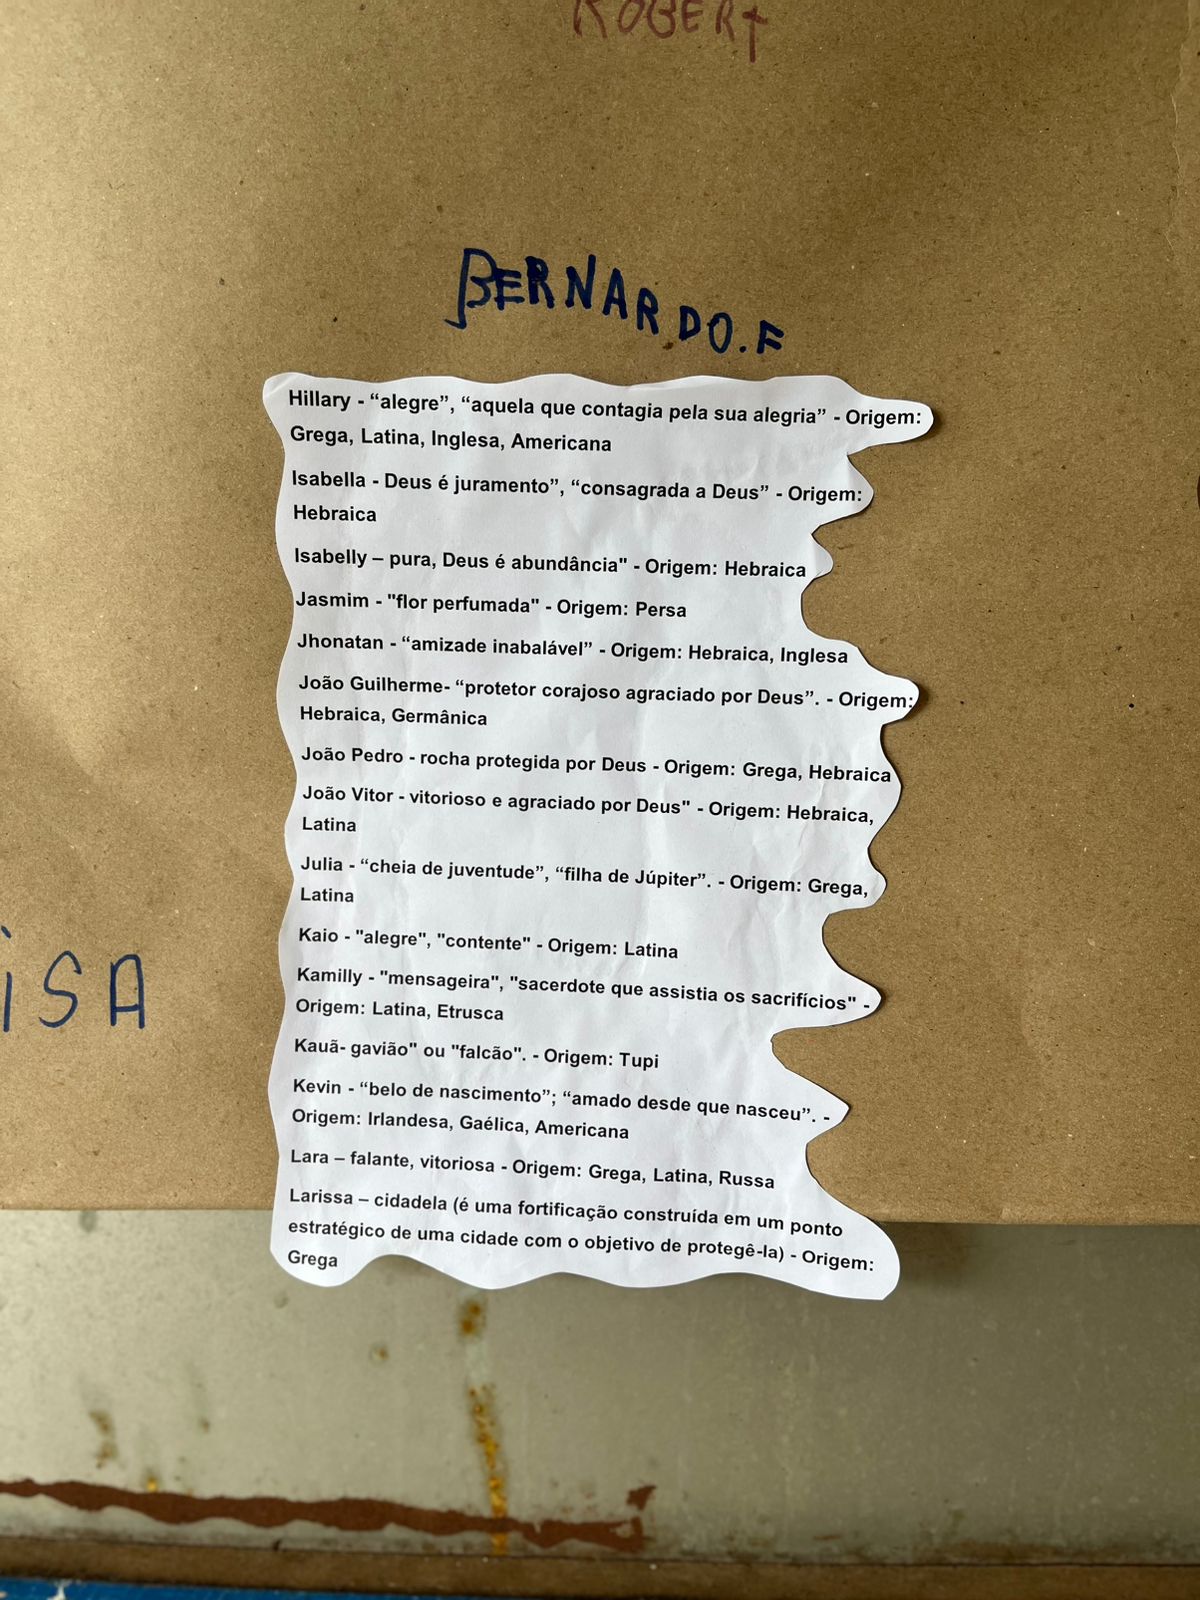 ROBERT
BERNARDO.F
Hillary - “alegre”, “aquela que contagia pela sua alegria” - Origem:
Grega, Latina, Inglesa, Americana
Isabella - Deus é juramento”, “consagrada a Deus” - Origem:
Hebraica
Isabelly – pura, Deus é abundância" - Origem: Hebraica
Jasmim - "flor perfumada" - Origem: Persa
Jhonatan - “amizade inabalável” - Origem: Hebraica, Inglesa
João Guilherme- “protetor corajoso agraciado por Deus”. - Origem:
Hebraica, Germânica
João Pedro - rocha protegida por Deus - Origem: Grega, Hebraica
João Vitor - vitorioso e agraciado por Deus" - Origem: Hebraica,
Latina
Julia - “cheia de juventude”, “filha de Júpiter”. - Origem: Grega,
Latina
Kaio - "alegre", "contente" - Origem: Latina
iSA
Kamilly - "mensageira", "sacerdote que assistia os sacrifícios" -
Origem: Latina, Etrusca
Kauã- gavião" ou "falcão". - Origem: Tupi
Kevin - “belo de nascimento”; “amado desde que nasceu”. -
Origem: Irlandesa, Gaélica, Americana
Lara – falante, vitoriosa - Origem: Grega, Latina, Russa
Larissa – cidadela (é uma fortificação construída em um ponto
estratégico de uma cidade com o objetivo de protegê-la) - Origem:
Grega